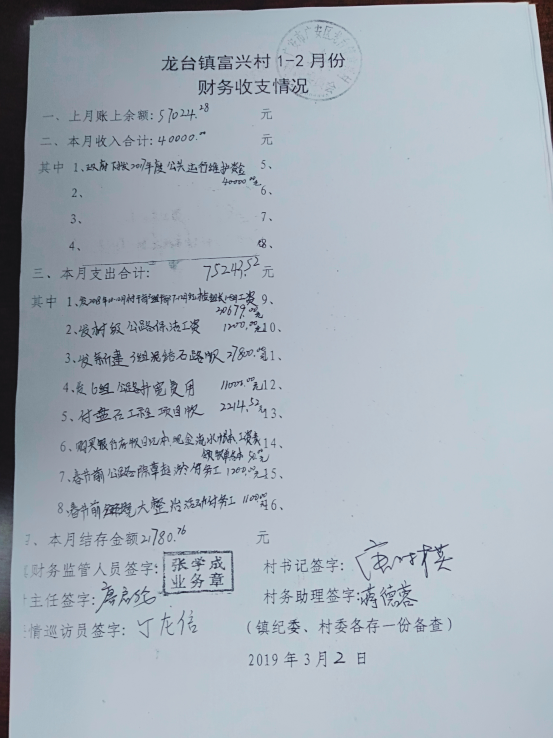 龙台镇富兴村1-2月份
财务收支情况
一、上月账上余额:57024.28 元
二、本月收入合计:40000.00 元
其中 1、政府下拨2017年度公共运行维护资金 40000.00元 5、
2、 6、
3、 7、
4、 8、
三、本月支出合计: 75243.52 元
其中 1、发2018年 工资 20679.00元 9、
2、发村级公路保洁工资 1200.00元 10、
3、发新建 组泥结石路款 27800.00元 11、
4、发6组公路扩宽费用 11000.00元 12、
5、付盘石工程项目款 2214.52元 13、
6、购买银行存款日记本、现金流水账本、工资表 50.00元 14、
7、春节前公路除草 务工 1200.00元 15、
8、春节前 大整治活动付务工 1100.00元 16、
、本月结存金额21780.76 元
财务监管人员签字: 张学成 业务章 村书记签字:
主任签字: 村务助理签字:蒋德蓉
情巡访员签字:丁龙信 (镇纪委、村委各存一份备查)
2019年3月2日